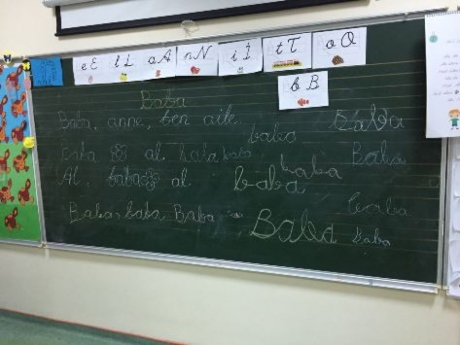 eE lL aA nN iİ tT oO
bB
Baba
Baba, anne, ben aile.
baba
Baba
Baba al baba
Baba
baba
Al baba al
baba
Baba baba Baba
Baba
baba
Baba
baba